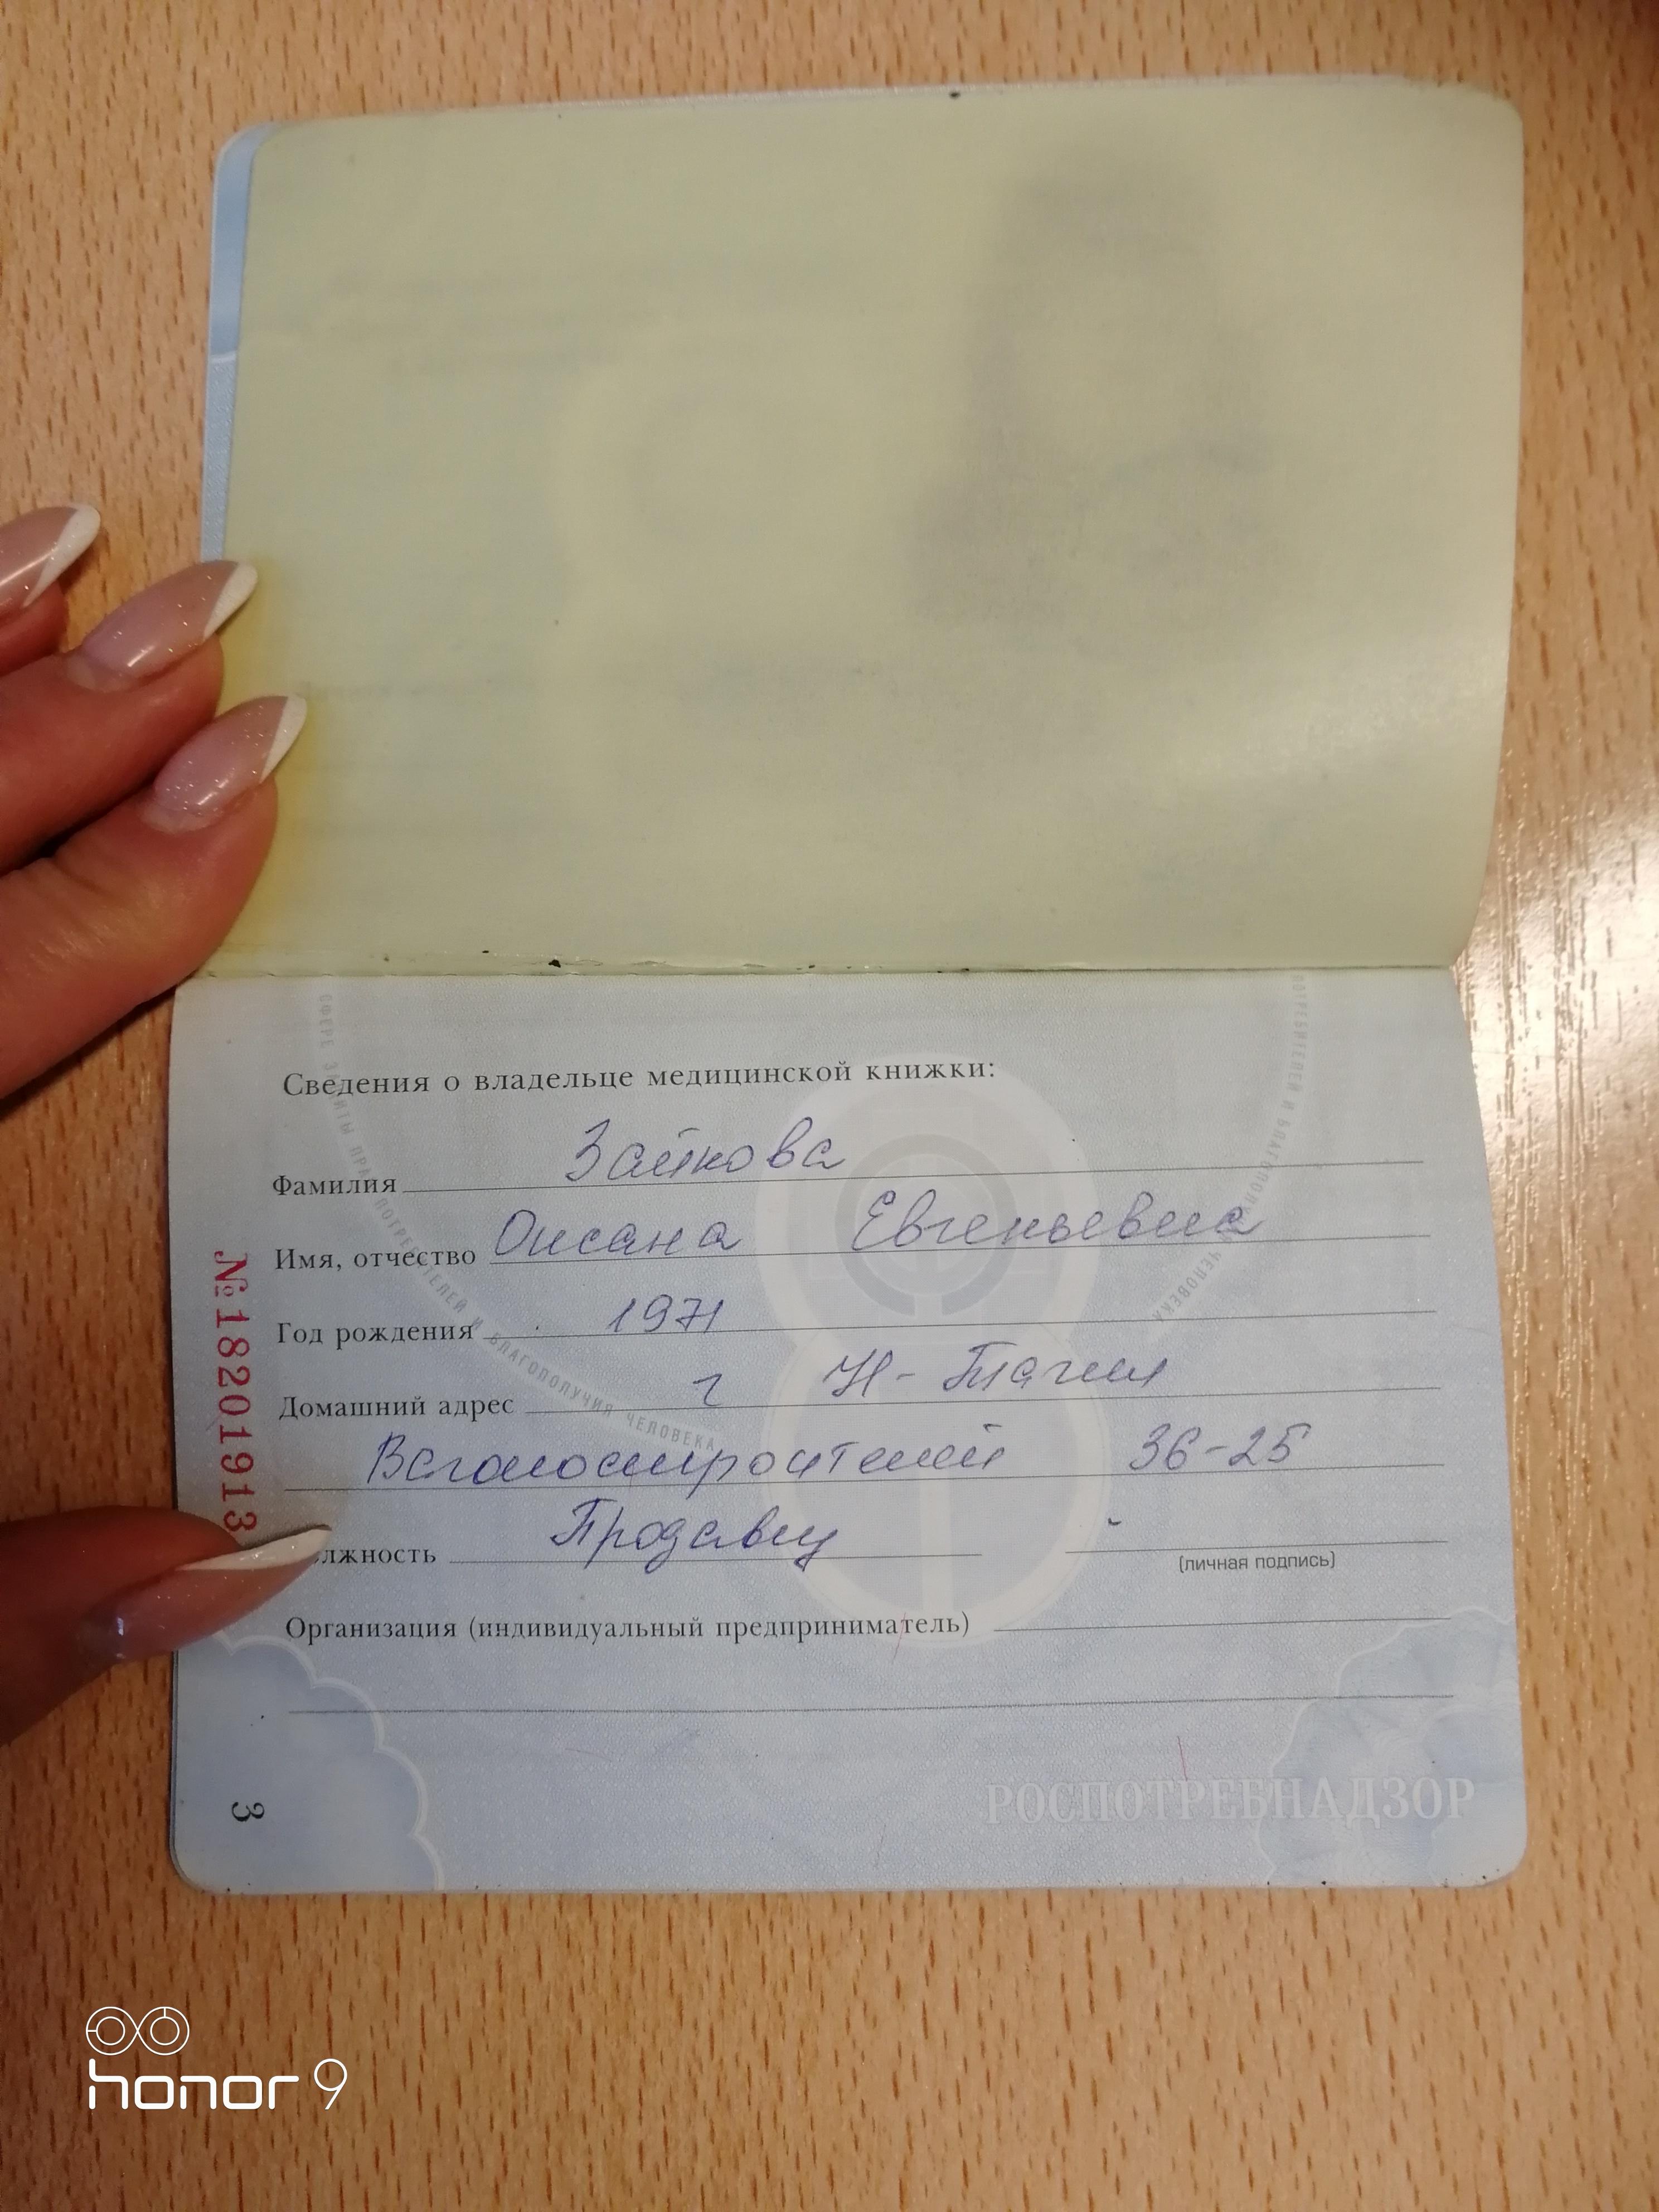 Сведения о владельце медицинской книжки:
Фамилия Зайкова
Имя, отчество Оксана Евгеньевна
Год рождения 1971
Домашний адрес г Н-Тагил
Вагоностроителей 36-25
олжность Продавец
(личная подпись)
Организация (индивидуальный предприниматель)
№18201913
3
РОСПОТРЕБНАДЗОР
СФЕРЕ ЗАЩИТЫ ПРАВ ПОТРЕБИТЕЛЕЙ И БЛАГОПОЛУЧИЯ ЧЕЛОВЕКА
honor 9